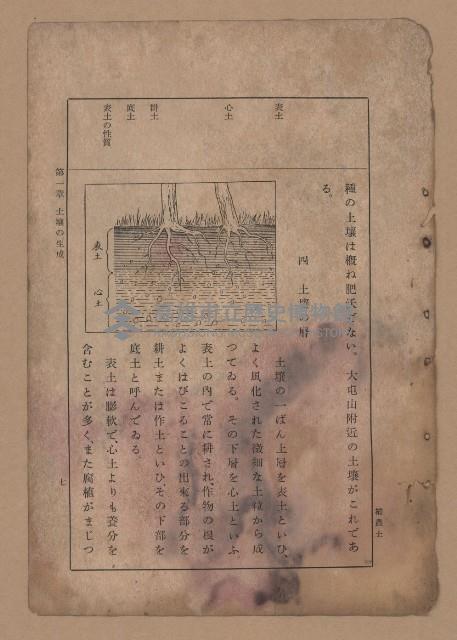 表土
心土
耕土
底土
表土の性質
種の土壤は概ね肥沃でない。大屯山附近の土壤がこれであ
る。
四 土壤層
土壤の一ばん上層を表土といひ、
よく風化された微細な土粒から成
つてゐる。その下層を心土といふ
表土の内で常に耕され、作物の根が
よくはびこることの出來る部分を
耕土または作土といひ、その下部を
底土と呼んでゐる。
表土は膨軟で、心土よりも養分を
含むことが多く、また腐植がまじつ
表土
心土
第一章 土壤の生成
七
高雄市立歷史博物館